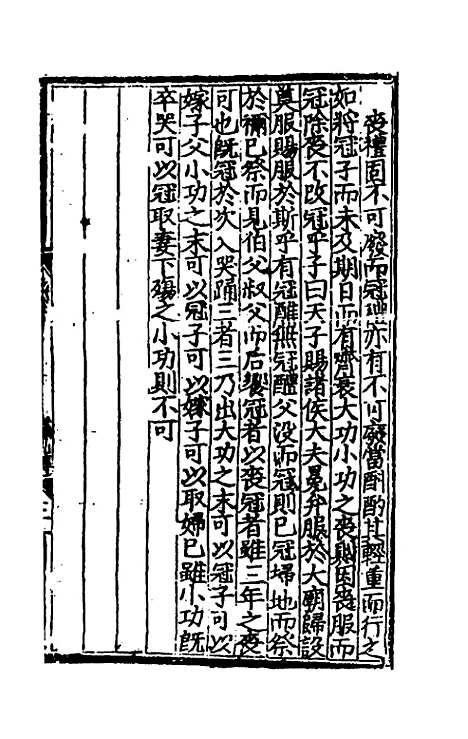 喪禮固不可廢而冠禮亦有不可廢當酌酌其輕重而行之
如將冠子而未及期日而有齊衰大功小功之喪則因喪服而
冠除喪不改冠乎子曰天子賜諸侯大夫冕弁服於大廟歸設
奠服賜服於斯乎有冠醮無冠醴父沒而冠則已冠埽地而祭
於禰已祭而見伯父叔父而后饗冠者以喪冠者雖三年之喪
可也旣冠於次入哭踊三者三乃出大功之末可以冠子可以
嫁子父小功之末可以冠子可以嫁子可以取婦已雖小功旣
卒哭可以冠取妻下殤之小功則不可